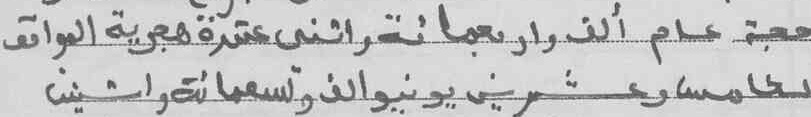 حجة عام ألف واربعمائة واثنى عشرة هجرية الموافق
لخامس وعشرين يونيو الف وتسعمائة واثنين